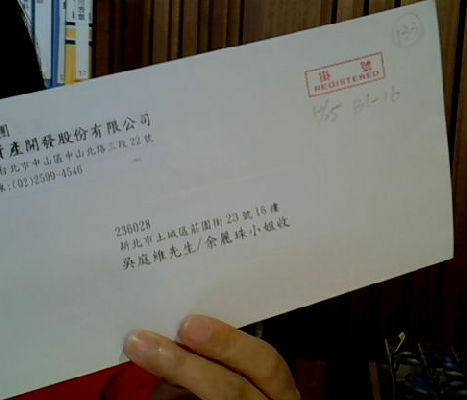 團
資產開發股份有限公司
台北市中山區中山北路三段22號
:(02)2599-4546
掛 號
REGISTERED
236028
新北市土城區莊園街23號16樓
吳庭維先生/余麗珠小姐收